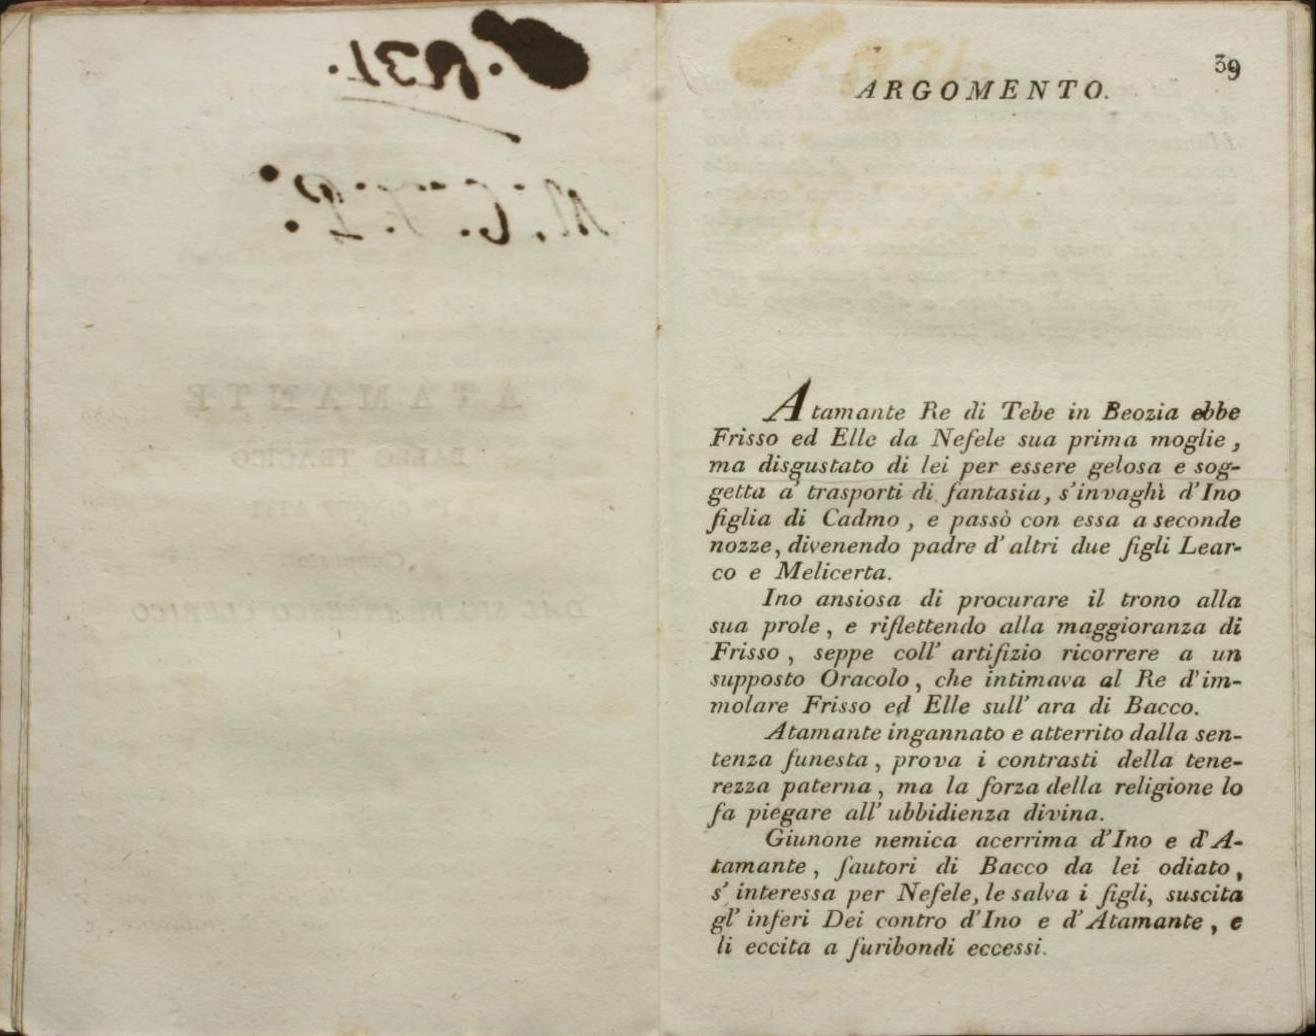 39
ARGOMENTO.
Atamante Re di Tebe in Beozia ebbe
Frisso ed Elle da Nefele sua prima moglie,
ma disgustato di lei per essere gelosa e sog-
getta a' trasporti di fantasia, s'invaghì d'Ino
figlia di Cadmo, e passò con essa a seconde
nozze, divenendo padre d'altri due figli Lear-
co e Melicerta.
Ino ansiosa di procurare il trono alla
sua prole, e riflettendo alla maggioranza di
Frisso, seppe coll' artifizio ricorrere a un
supposto Oracolo, che intimava al Re d'im-
molare Frisso ed Elle sull' ara di Bacco.
Atamante ingannato e atterrito dalla sen-
tenza funesta, prova i contrasti della tene-
rezza paterna, ma la forza della religione lo
fa piegare all' ubbidienza divina.
Giunone nemica acerrima d'Ino e d'A-
tamante, fautori di Bacco da lei odiato,
s' interessa per Nefele, le salva i figli, suscita
gl' inferi Dei contro d'Ino e d'Atamante, e
li eccita a furibondi eccessi.